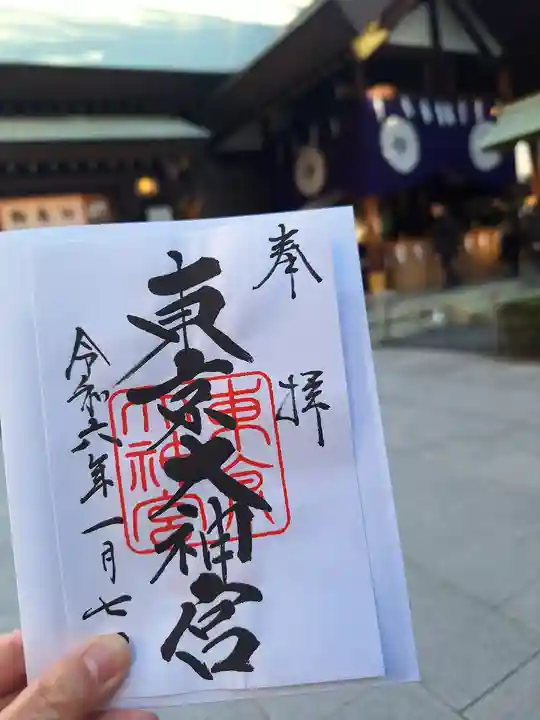 奉拝
東京大神宮
東京
大神宮
令和六年一月七